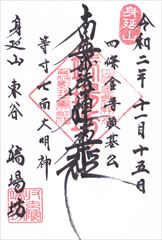 身延山
令和二年十一月十五日
四條金吾頼基公
南無妙法蓮華経
等寸七面大明神
身延山 東谷 端場坊